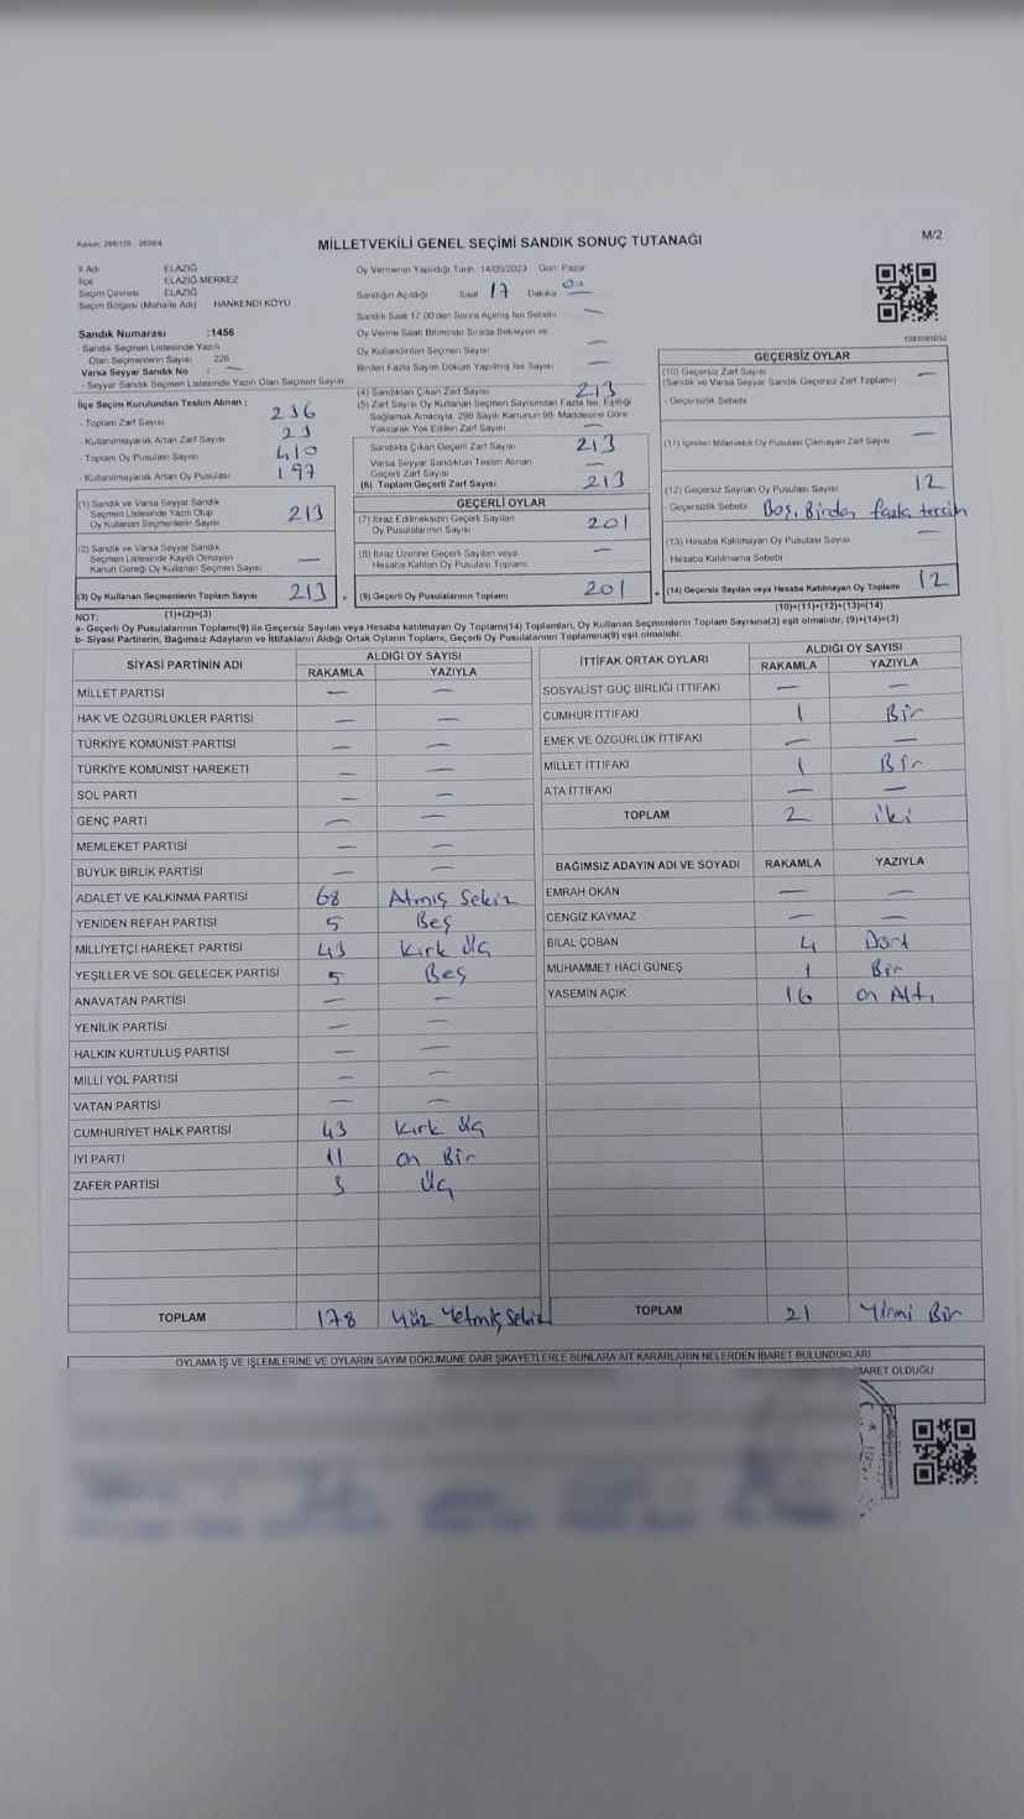 MİLLETVEKİLİ GENEL SEÇİMİ SANDIK SONUÇ TUTANAĞI
M/2
İl Adı : ELAZIĞ
İlçe : ELAZIĞ MERKEZ
Seçim Çevresi : ELAZIĞ
Seçim Bölgesi (Mahalle Adı) : HANKENDİ KÖYÜ
Sandık Numarası :1456
- Sandık Seçmen Listesinde Yazılı
Olan Seçmenlerin Sayısı : 226
Varsa Seyyar Sandık No : —
- Seyyar Sandık Seçmen Listesinde Yazılı Olan Seçmen Sayısı
İlçe Seçim Kurulundan Teslim Alınan :
- Toplam Zarf Sayısı 236
- Kullanılmayarak Artan Zarf Sayısı 23
- Toplam Oy Pusulası Sayısı 410
- Kullanılmayarak Artan Oy Pusulası 197
(1) Sandık ve Varsa Seyyar Sandık
Seçmen Listesinde Yazılı Olup
Oy Kullanan Seçmenlerin Sayısı 213
(2) Sandık ve Varsa Seyyar Sandık
Seçmen Listesinde Kaydı Olmayan
Kanun Gereği Oy Kullanan Seçmen Sayısı —
(3) Oy Kullanan Seçmenlerin Toplam Sayısı 213
(1)+(2)=(3)
Oy Vermenin Yapıldığı Tarih: 14/05/2023 Gün: Pazar
Sandığın Açıldığı Saat 17 Dakika 00
Sandık Saat 17.00'den Sonra Açılmış İse Sebebi —
Oy Verme Saati Bitiminde Sırada Bekleyen ve
Oy Kullandırılan Seçmen Sayısı —
Birden Fazla Sayım Döküm Yapılmış İse Sayısı —
(4) Sandıktan Çıkan Zarf Sayısı 213
(5) Zarf Sayısı Oy Kullanan Seçmen Sayısından Fazla İse, Eşitliği
Sağlamak Amacıyla, 298 Sayılı Kanunun 98. Maddesine Göre
Yakılarak Yok Edilen Zarf Sayısı —
Sandıkta Çıkan Geçerli Zarf Sayısı 213
Varsa Seyyar Sandıktan Teslim Alınan
Geçerli Zarf Sayısı —
(6) Toplam Geçerli Zarf Sayısı 213
GEÇERLİ OYLAR
(7) İtiraz Edilmeksizin Geçerli Sayılan
Oy Pusulalarının Sayısı 201
(8) İtiraz Üzerine Geçerli Sayılan veya
Hesaba Katılan Oy Pusulası Toplamı —
(9) Geçerli Oy Pusulalarının Toplamı 201
GEÇERSİZ OYLAR
(10) Geçersiz Zarf Sayısı
(Sandık ve Varsa Seyyar Sandık Geçersiz Zarf Toplamı) —
- Geçersizlik Sebebi
(11) İçinden Milletvekili Oy Pusulası Çıkmayan Zarf Sayısı —
(12) Geçersiz Sayılan Oy Pusulası Sayısı 12
- Geçersizlik Sebebi Boş, Birden fazla tercih
(13) Hesaba Katılmayan Oy Pusulası Sayısı —
- Hesaba Katılmama Sebebi
(14) Geçersiz Sayılan veya Hesaba Katılmayan Oy Toplamı 12
(10)+(11)+(12)+(13)=(14)
NOT:
a- Geçerli Oy Pusulalarının Toplamı(9) ile Geçersiz Sayılan veya Hesaba katılmayan Oy Toplamı(14) Toplamları, Oy Kullanan Seçmenlerin Toplam Sayısına(3) eşit olmalıdır. (9)+(14)=(3)
b- Siyasi Partilerin, Bağımsız Adayların ve İttifakların Aldığı Ortak Oyların Toplamı, Geçerli Oy Pusulalarının Toplamına(9) eşit olmalıdır.
SİYASİ PARTİNİN ADI ALDIĞI OY SAYISI
RAKAMLA YAZIYLA
MİLLET PARTİSİ — —
HAK VE ÖZGÜRLÜKLER PARTİSİ — —
TÜRKİYE KOMÜNİST PARTİSİ — —
TÜRKİYE KOMÜNİST HAREKETİ — —
SOL PARTİ — —
GENÇ PARTİ — —
MEMLEKET PARTİSİ — —
BÜYÜK BİRLİK PARTİSİ — —
ADALET VE KALKINMA PARTİSİ 68 Atmış Sekiz
YENİDEN REFAH PARTİSİ 5 Beş
MİLLİYETÇİ HAREKET PARTİSİ 43 Kırk Üç
YEŞİLLER VE SOL GELECEK PARTİSİ 5 Beş
ANAVATAN PARTİSİ — —
YENİLİK PARTİSİ — —
HALKIN KURTULUŞ PARTİSİ — —
MİLLİ YOL PARTİSİ — —
VATAN PARTİSİ — —
CUMHURİYET HALK PARTİSİ 43 Kırk Üç
İYİ PARTİ 11 on Bir
ZAFER PARTİSİ 3 Üç
TOPLAM 178 Yüz Yetmiş Sekiz
İTTİFAK ORTAK OYLARI ALDIĞI OY SAYISI
RAKAMLA YAZIYLA
SOSYALİST GÜÇ BİRLİĞİ İTTİFAKI — —
CUMHUR İTTİFAKI 1 Bir
EMEK VE ÖZGÜRLÜK İTTİFAKI — —
MİLLET İTTİFAKI 1 Bir
ATA İTTİFAKI — —
TOPLAM 2 iki
BAĞIMSIZ ADAYIN ADI VE SOYADI RAKAMLA YAZIYLA
EMRAH OKAN — —
CENGİZ KAYMAZ — —
BİLAL ÇOBAN 4 Dört
MUHAMMET HACI GÜNEŞ 1 Bir
YASEMİN AÇIK 16 on Altı
TOPLAM 21 Yirmi Bir
OYLAMA İŞ VE İŞLEMLERİNE VE OYLARIN SAYIM DÖKÜMÜNE DAİR ŞİKAYETLERLE BUNLARA AİT KARARLARIN NELERDEN İBARET BULUNDUKLARI
BARET OLDUĞU